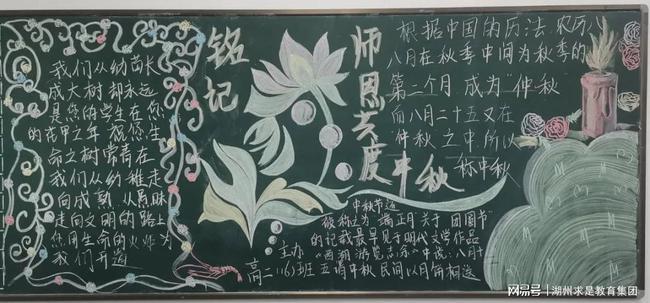 我们从幼苗长
成大树却永远
是您的学生在您
的花甲之年祝您生
命之树常青在
我们从幼稚走
向成熟从愚昧
走向文明的路上
您用生命的火炬为
我们开道
铭记
师恩共度中秋
根据中国的历法,农历八
八月在秋季中间为秋季的
第二个月成为"仲秋
而八月二十五又在
仲秋之中所以
称中秋
中秋节还
被称之为"端正月"关于"团圆节"
的记载最早见于明代文学作品
"西湖游览志余"中说:八月十
五谓中秋民间以月饼相遗
主办
高二(6)班
网易号 | 湖州求是教育集团